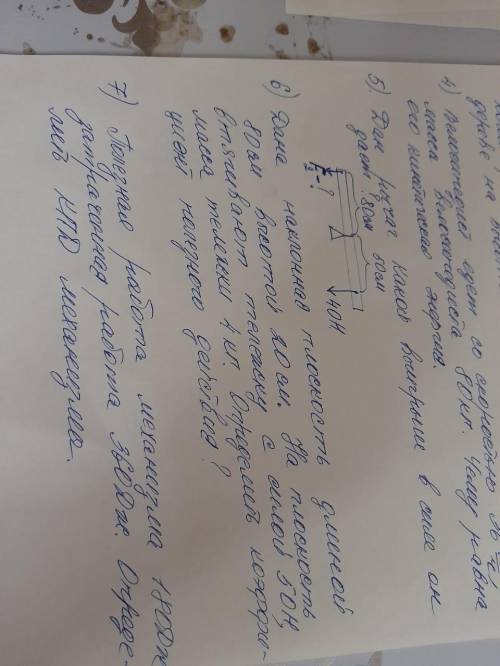 дороге, на
4) Велосипедист едет со скоростью 36
масса велосипедиста 80 кг. Чему равна
его кинетическая энергия.
5) Дан рычаг. Какой выигрыш в силе он
дает
80см 50см
F₂-?
40Н
6) Дана наклонная плоскость длиной
80см высотой 20см. На плоскость
втягивают тележку с силой 50Н,
масса тележки 4 кг. Определить коэффи-
циент полезного действия?
7) Полезная работа механизма 180Дж
затраченная работа 360Дж. Опреде-
лить КПД механизма.